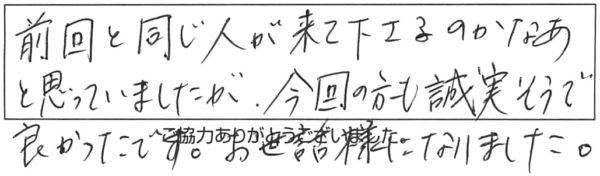 前回と同じ人が来て下さるのかなあ
と思っていましたが、今回の方も誠実そうで
良かったです。お世話様になりました。
～ご協力ありがとうございました～